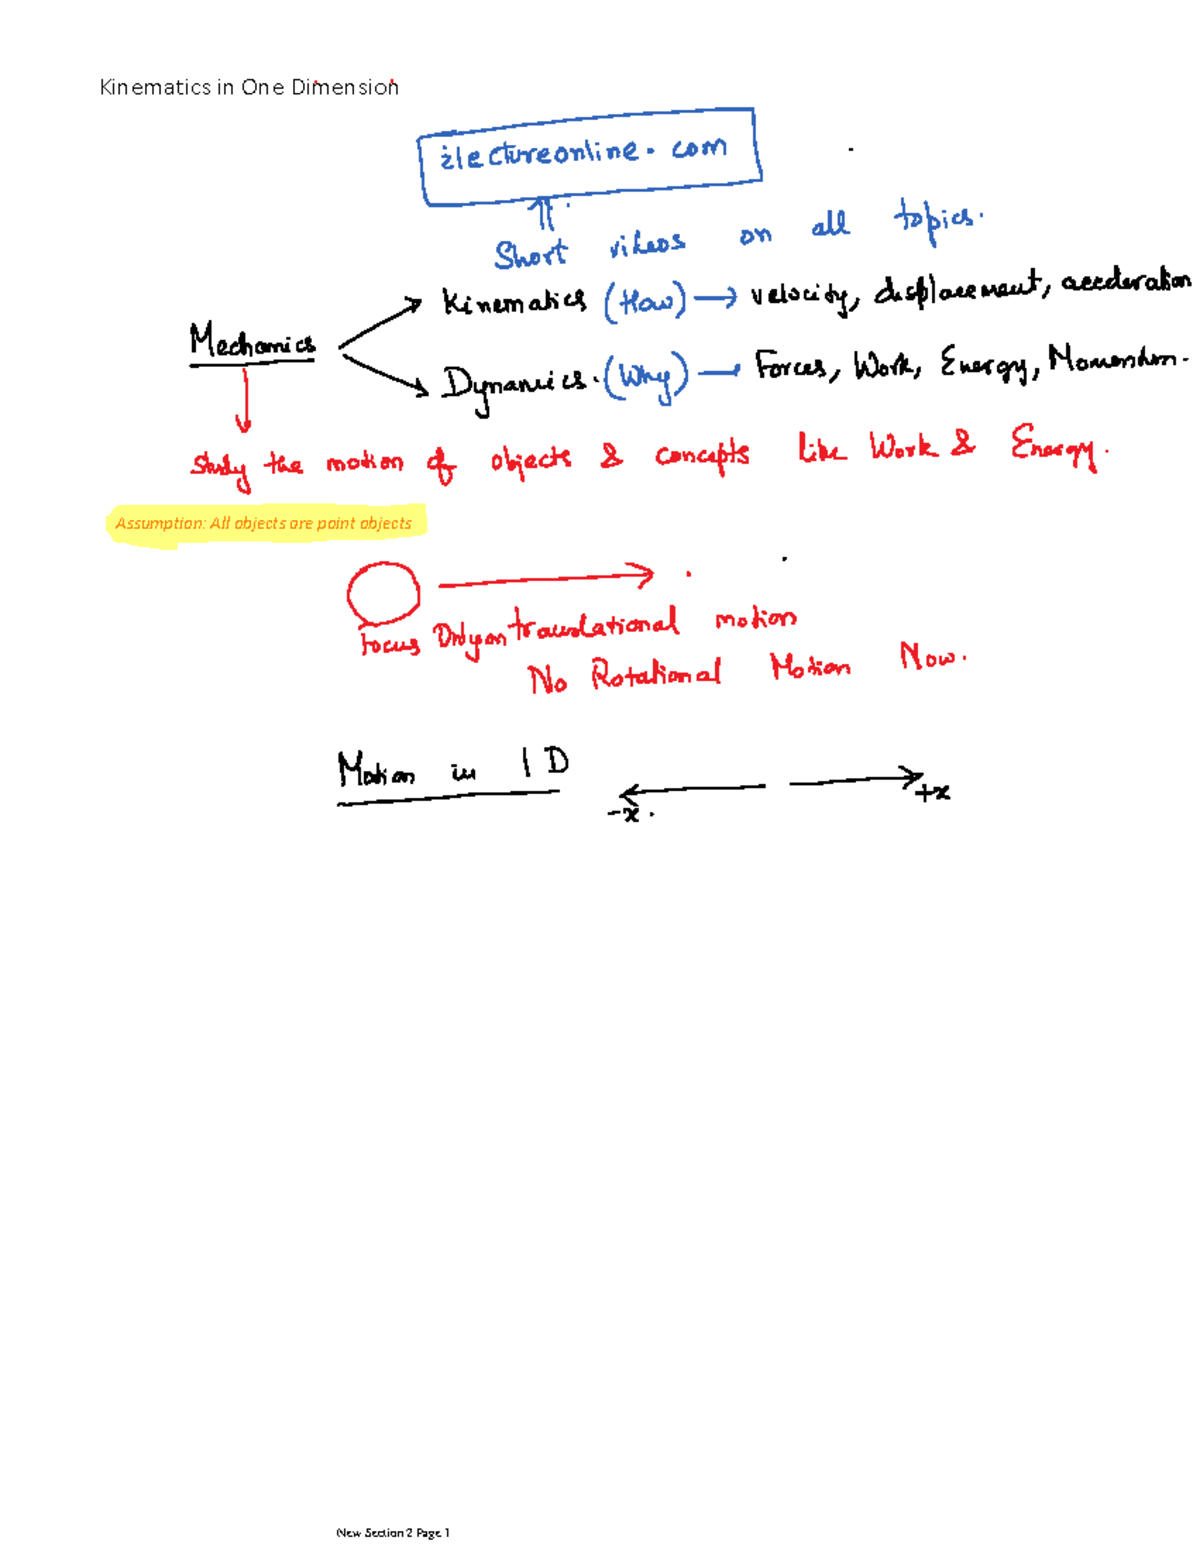 Kinematics in One Dimension
ilectureonline.com
Short videos on all topics.
Kinematics (How) → velocity, displacement, acceleration
Mechanics
Dynamics. (Why) → Forces, Work, Energy, Momentum.
Study the motion of objects & concepts like Work & Energy.
Assumption: All objects are point objects
Focus Only on translational motion
No Rotational Motion Now.
Motion in 1D
-x.
+x
New Section 2 Page 1